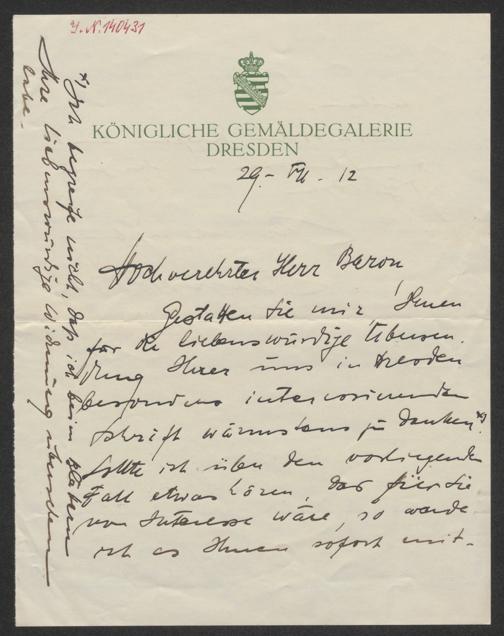 I.N. 140431
KÖNIGLICHE GEMÄLDEGALERIE
DRESDEN
29. VII. 12
Hochverehrter Herr Baron,
Gestatten Sie mir, Ihnen
für die liebenswürdige Übersen-
dung Ihrer uns in Dresden
besonders interessirenden
Schrift wärmstens zu danken.*)
Sollte ich über den vorliegenden
Fall etwas hören, das für Sie
von Interesse wäre, so werde
ich es Ihnen sofort mit-
*) Ich begreife nicht, daß ich beim
Ihre liebenswürdige Widmung übersehen
habe.